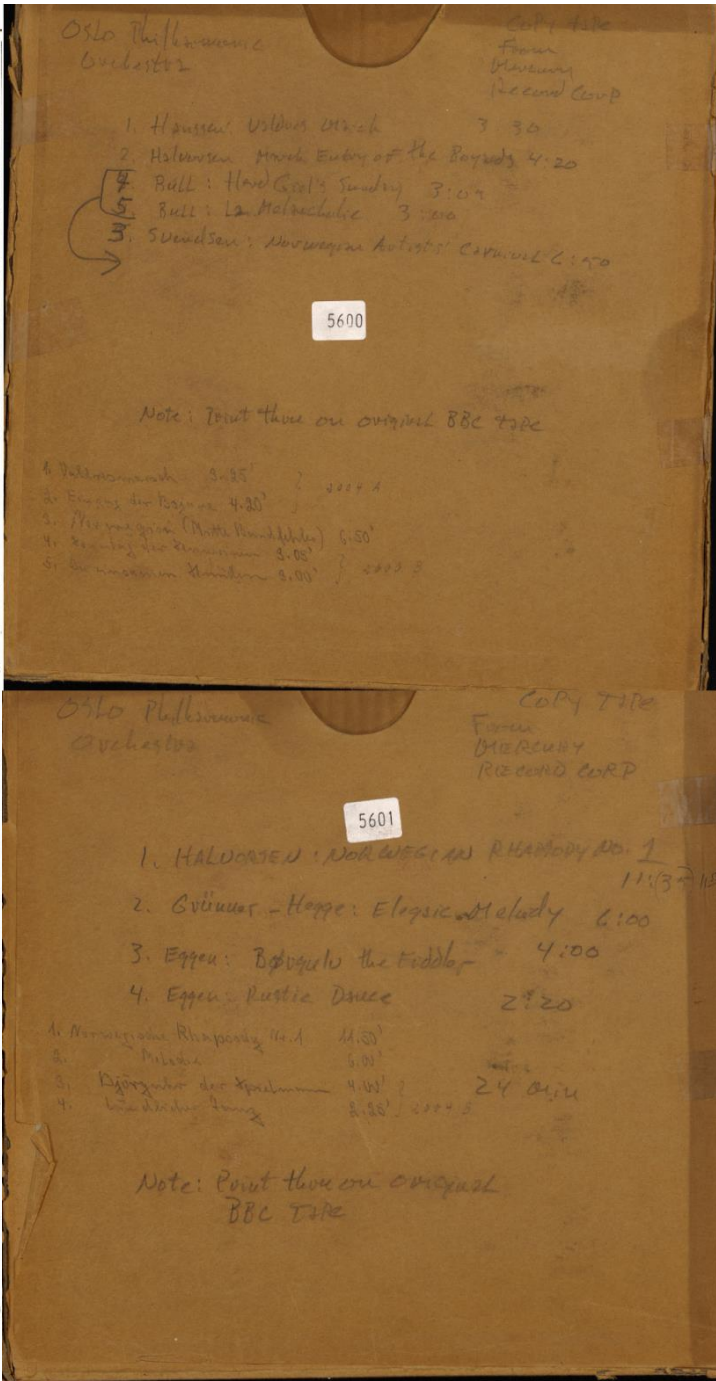 Oslo Philharmonic
Orchestra
Copy tape
From
Mercury
Record Corp
1. Hansen: Valdres March 3 30
2. Halvorsen March Entry of the Boyards 4.20
4. Bull: Herd Girl's Sunday 3:05
5. Bull: La Melancholie 3:00
3. Svendsen: Norwegian Artists' Carnival 6:50
5600
Note: Print thru on original BBC tape
1. 3.25'
2. der Bojaren 4.20'
3. Norwegian 6.50'
4. Sonntag der 3.05'
5. 3.00'
Oslo Philharmonic
Orchestra
COPY TAPE
From
MERCURY
RECORD CORP
5601
1. HALVORSEN: NORWEGIAN RHAPSODY NO. 1
2. Grüner-Hegge: Elegaic Melody 6:00
3. Eggen: Børgulv the Fiddler 4:00
4. Eggen: Rustic Dance 2:20
1. Norwegische Rhapsody Nr. 1 11.50'
2. Melodie 6.00'
3. der Spielmann 4.00'
4. 2.25'
24 min
Note: Print thru on original
BBC TAPE